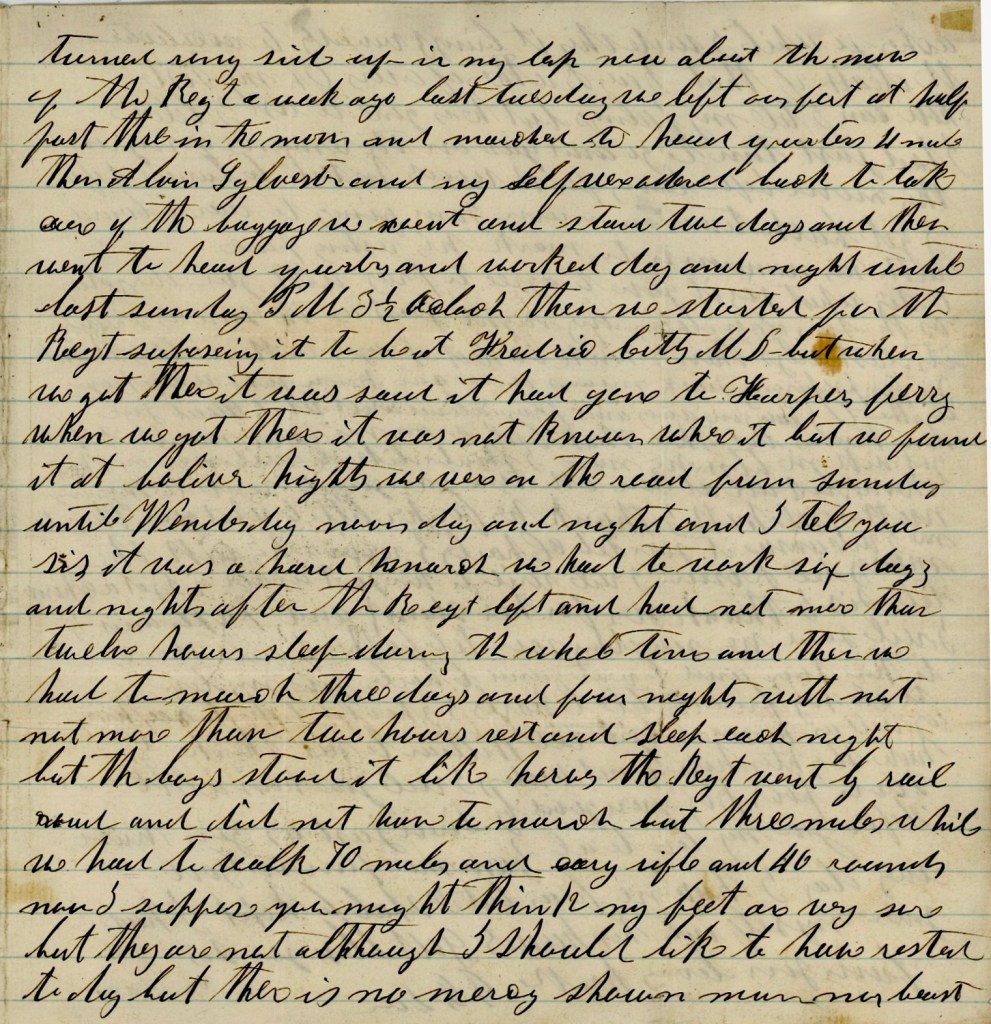 turned rong sid up in my lap now about th move
of th Regt a week ago last tuesday we left our fort at half
past thre in the morn and marched to head quarters 4 mile
then Alvin Sylvester and my self wex ordered back to tak
care of th baggage we went and staid two days and then
went to head quarters and worked day and night until
last sunday P M 3 1/2 Oclock then we started for th
Regt suposeing it to be at Fredric Citty M D but when
we got ther it was said it had gone to Harpers ferry
when we got ther it was not known wher it but we found
it at boliver hights we wer on th road from sunday
until Wendesday noon day and night and I tell you
sis it was a hard march we had to work six days
and nights after th Regt left and had not mor than
twelve hours sleep during th whole time and then we
had to march three days and four nights with not
not more than two hours rest and sleep each night
but th boys stood it lik heroes the Regt went by rail
road and did not have to march but three miles while
we had to walk 70 miles and cary rifle and 40 rounds
now I suppose you might think my feet ar very sore
but they are not although I should like to have rested
to day but ther is no mercy shown man nor beast